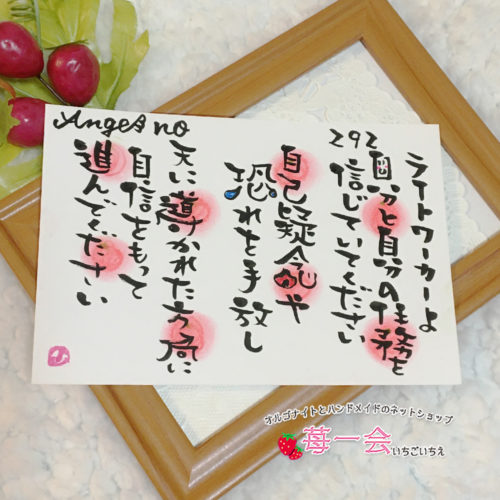 Angel no
292
ライトワーカーよ
自分と自分の任務を
信じていてください
自己疑念や
恐れを手放し
天に導かれた方向に
自信をもって
進んでください
オルゴナイトとハンドメイドのネットショップ
苺一会いちごいちえ